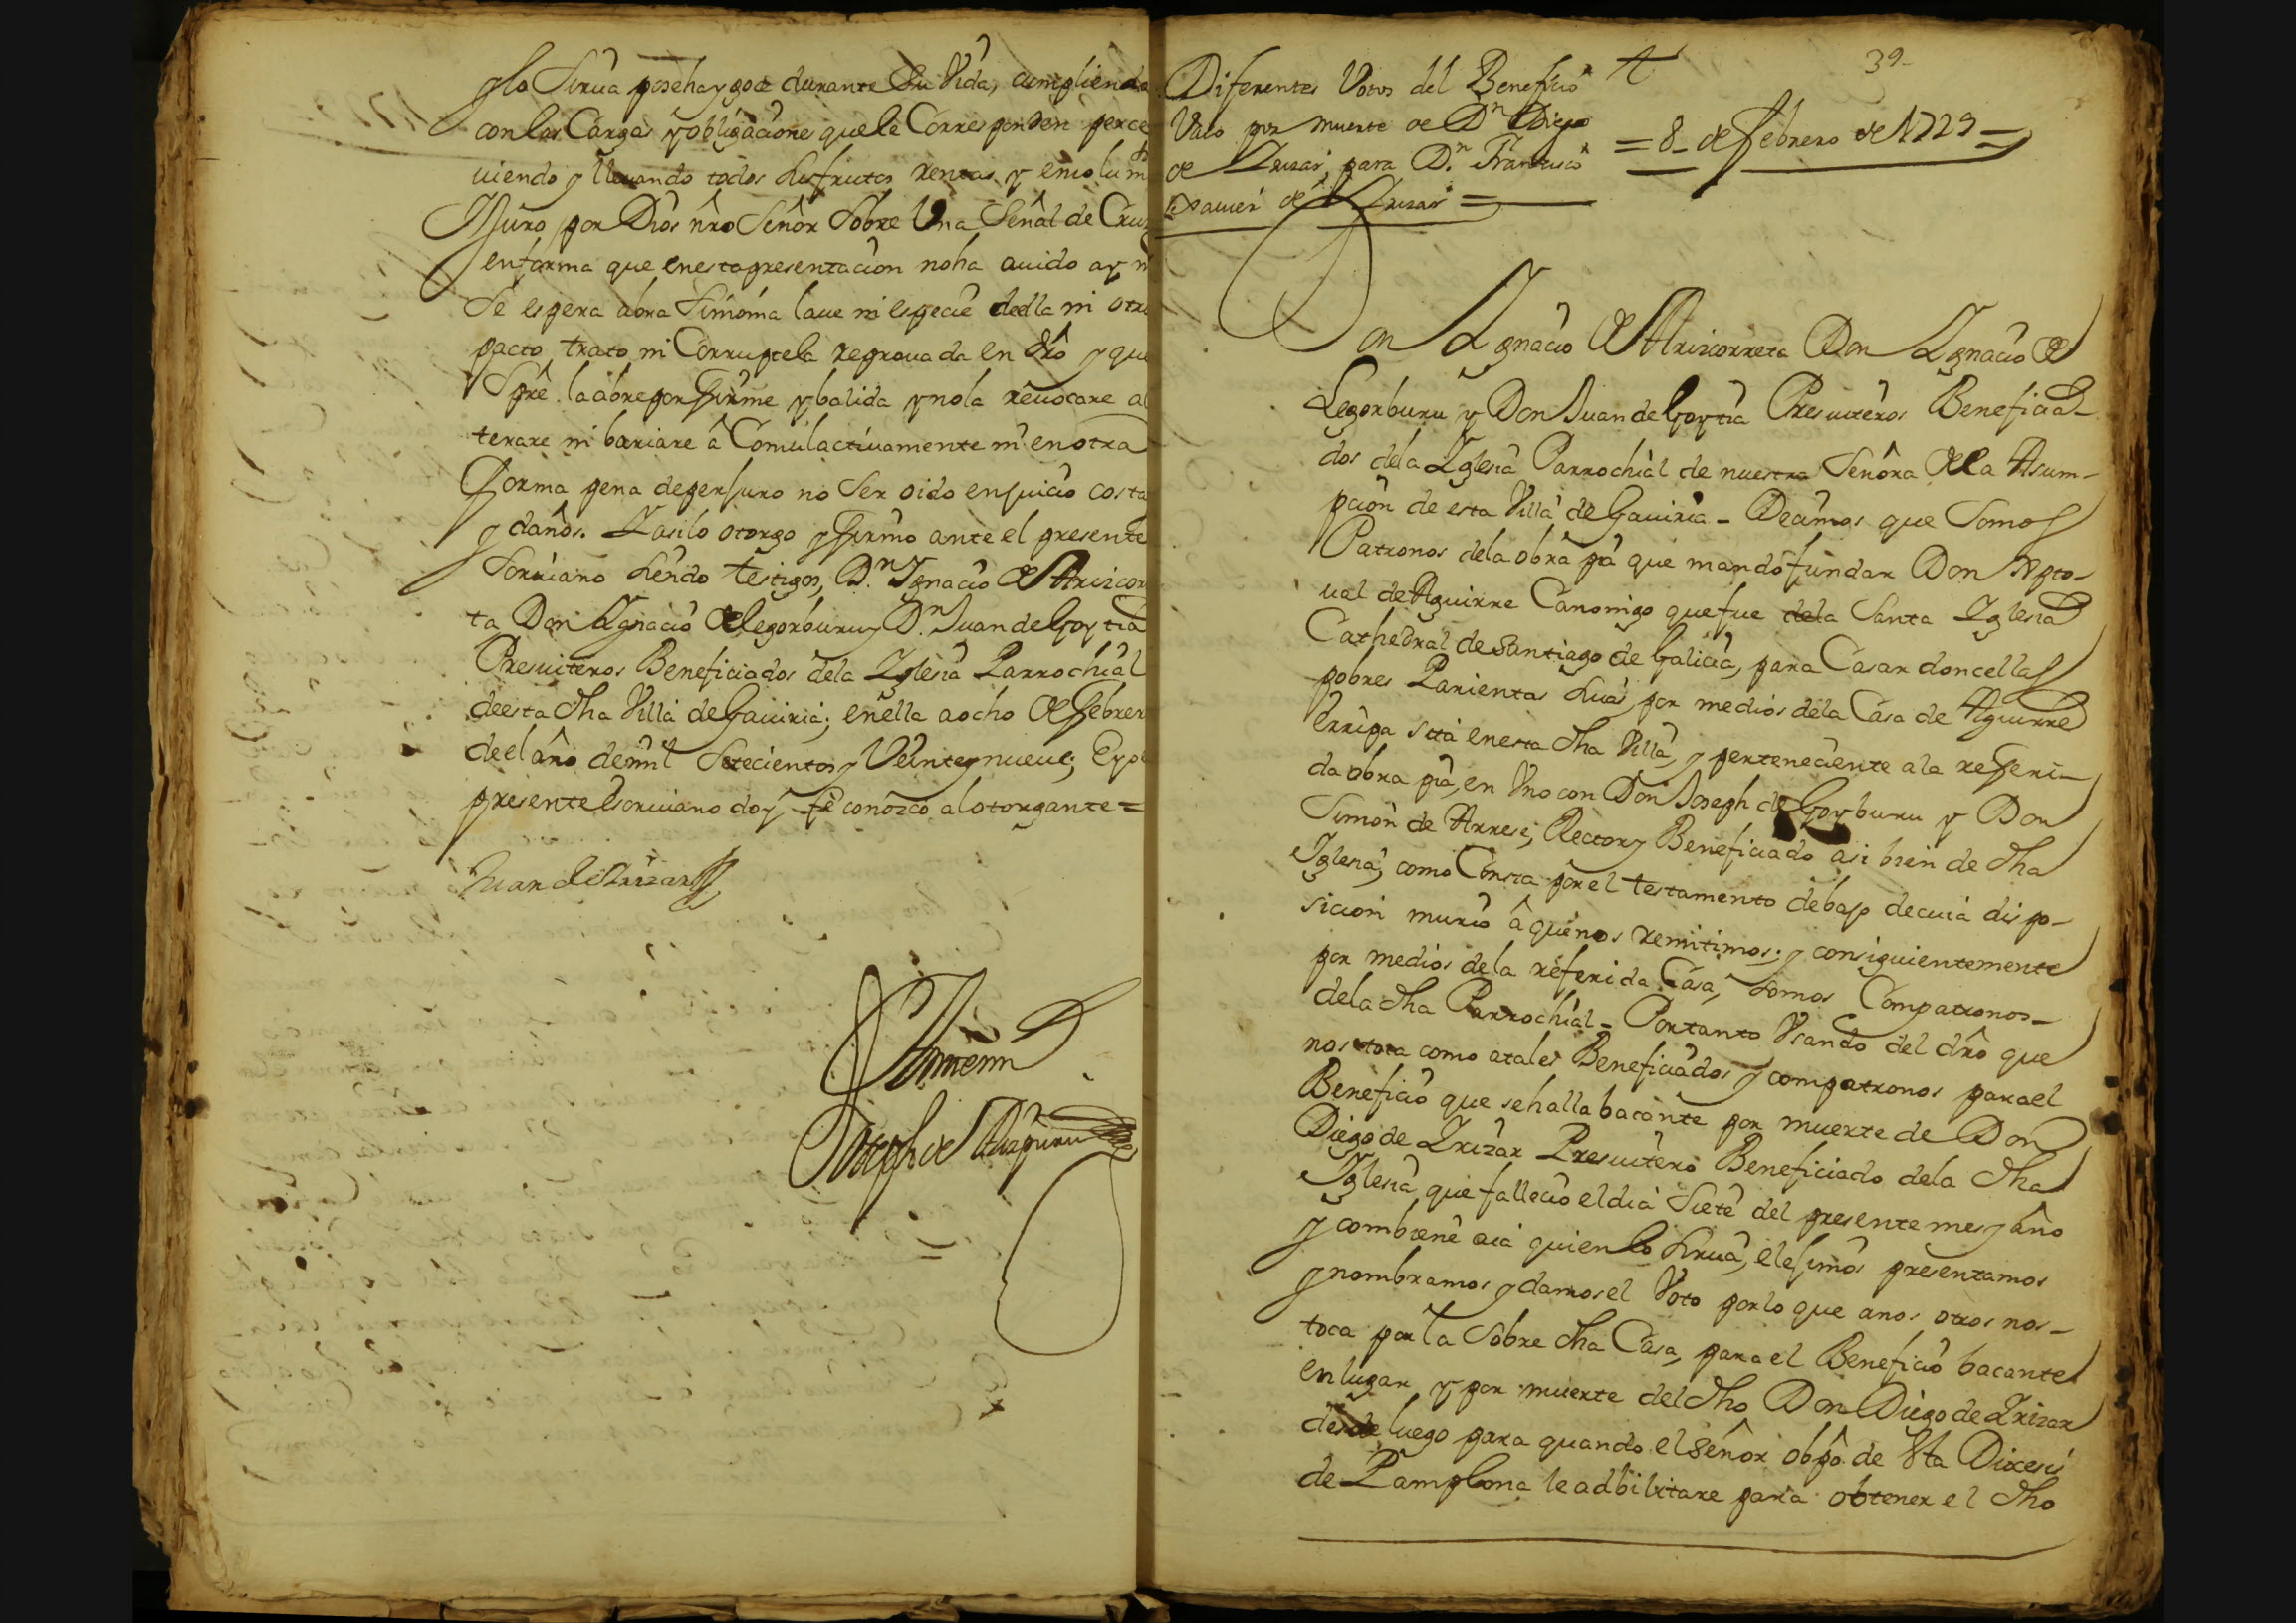 y lo Sirua poseha y goze durante Su Vida, cumpliendo
con las Cargas y obligacione que le Corresponden perce
uiendo y lleuando todos los frutos rentas y emolum
Y Juro por Dios nrô Señor Sobre Vna Señal de Cruz
en forma que en esta presentacion no ha auido ay n
Se espera abra Simonia laue ni especie de ella ni otro
pacto, trato, ni Corruptela reprouada en drô y que
Sprê la abre por firme y balida y no la reuocare al
terare ni bariare â Comulactiuamente ni en otra
forma pena de perjuro no Ser oido en juicio costa
y daños. Y asi lo otorgo y firmo ante el presente
Scriuano Siendo testigos, D.n Ygnacio de Arizcor
ta Don Ygnacio de Legorburu y D.n Juan de Goytia
Presuiteros Beneficiados de la Yglesia Parrochial
de esta dha Villa de Gauiria; en ella a ocho de Febrer
de el año de mil Setecientos y Veinte y nueue; E yo el
presente Escriuano doy fe conozco al otorgante =
Juan de Yrizar
Antemi
Joseph de Aizpuru
=
Diferentes Votos del Beneficio
Vaco por muerte de Dn Diego
de Yrizar, para D.n Francisco
Xauier de Yrizar =
39
= 8 de Febrero de 1729 =
Don Ygnacio de Arizcorreta Don Ygnacio de
Legorburu y Don Juan de Goytia Presuiteros Beneficia-
dos de la Yglesia Parrochial de nuestra Señora de la Asum-
pcion de esta Villa de Gauiria - Decimos que Somos
Patronos de la obra pia que mandó fundar Don Xpto-
ual de Aguirre Canonigo que fue de la Santa Yglesia
Cathedral de Santiago de Galicia, para Casar doncellas
pobres Parientas Suias, por medios de la Casa de Aguirre
Erripa sita en esta dha Villa, y perteneciente a la referi-
da obra pia, en Vno con Don Joseph de Goyburu y Don
Simon de Arrese, Rector y Beneficiado asi bien de dha
Yglesia, como Consta por el testamento debajo de cuia dispo-
sicion murio â que nos remitimos; y consiguientemente
por medios de la referida Casa, Somos Compatronos
de la dha Parrochial - Portanto Vsando del drô que
nos toca como a tales Beneficiados y compatronos para el
Beneficio que se halla bacante por muerte de Don
Diego de Yrizar Presuitero Beneficiado de la dha
Yglesia, que fallecio el dia Siete del presente mes y año
y combiene aia quien lo Sirua, elejimos presentamos
y nombramos y damos el Voto por lo que a nos otros nos
toca por la Sobre dha Casa, para el Beneficio bacante
en lugar y por muerte del dho Don Diego de Yrizar
desde luego para quando el Señor obpô de Sta Diocesis
de Pamplona le adbilitare para obtener el dho